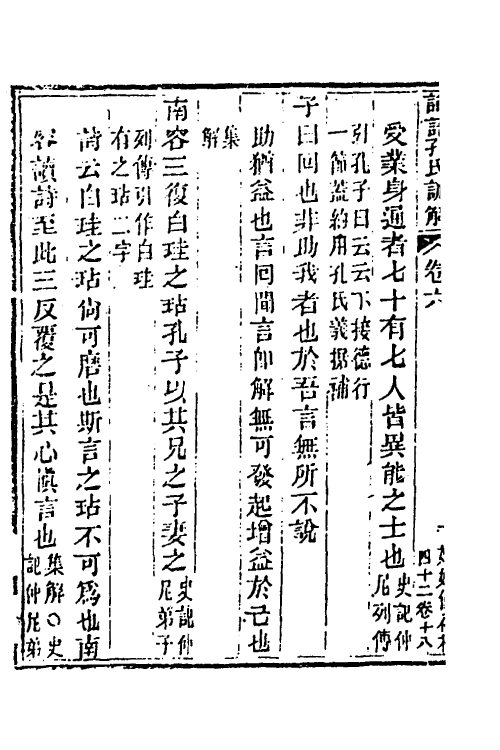 論語孔氏訓解 卷六
四十二卷十八
受業身通者七十有七人皆異能之士也史記仲
尼列傳
引孔子曰云云下接德行
一節蓋約用孔氏義據補
子曰回也非助我者也於吾言無所不說
助猶益也言回聞言卽解無可發起增益於己也
集
解
南容三復白珪之玷孔子以其兄之子妻之史記仲
尼弟子
列傳引作白珪
有之玷二字
詩云白珪之玷尚可磨也斯言之玷不可爲也南
容讀詩至此三反覆之是其心慎言也集解〇史
記仲尼弟